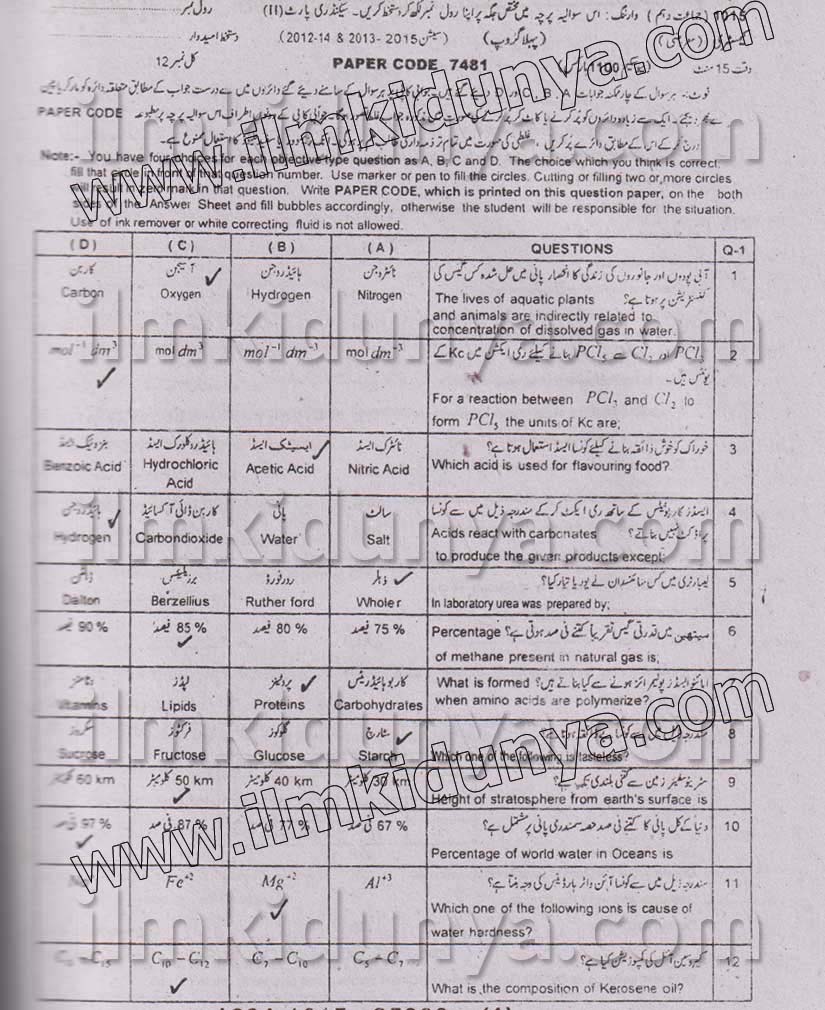 1015 (جماعت دہم) وارننگ: اس سوالیہ پرچہ میں مختص جگہ پر اپنا رول نمبر لکھ کر دستخط کریں۔ سیکنڈری پارٹ (II) رول نمبر
(پہلا گروپ) (سیشن 2015-2013 & 2012-14) دستخط امیدوار
وقت 15 منٹ PAPER CODE 7481 کل نمبر 12
PAPER CODE
Note:- You have four choices for each objective type question as A, B, C and D. The choice which you think is correct,
fill that circle in front of that question number. Use marker or pen to fill the circles. Cutting or filling two or more circles
will result in zero mark in that question. Write PAPER CODE, which is printed on this question paper, on the both
sides of the Answer Sheet and fill bubbles accordingly, otherwise the student will be responsible for the situation.
Use of ink remover or white correcting fluid is not allowed.
(D) (C) (B) (A) QUESTIONS Q-1
کاربن آکسیجن ہائیڈروجن نائٹروجن آبی پودوں اور جانوروں کی زندگی کا انحصار پانی میں حل شدہ کس گیس کی 1
کنسنٹریشن پر ہوتا ہے؟
Carbon Oxygen Hydrogen Nitrogen The lives of aquatic plants
and animals are indirectly related to
concentration of dissolved gas in water.
mol⁻¹ dm³ mol dm³ mol⁻¹ dm⁻³ mol dm⁻³ PCl₃ اور Cl₂ سے PCl₅ بنانے کیلئے ری ایکشن میں Kc کے 2
یونٹس ہیں۔
For a reaction between PCl₃ and Cl₂ to
form PCl₅ the units of Kc are;
بنزوئیک ایسڈ ہائیڈروکلورک ایسڈ ایسیٹک ایسڈ نائٹرک ایسڈ خوراک کو خوش ذائقہ بنانے کیلئے کونسا ایسڈ استعمال ہوتا ہے؟ 3
Benzoic Acid Hydrochloric Acid Acetic Acid Nitric Acid Which acid is used for flavouring food?
ہائیڈروجن کاربن ڈائی آکسائیڈ پانی سالٹ ایسڈز کاربونیٹس کے ساتھ ری ایکٹ کر کے مندرجہ ذیل میں سے کونسا 4
پراڈکٹ نہیں بناتے؟
Hydrogen Carbondioxide Water Salt Acids react with carbonates
to produce the given products except;
ڈالٹن برزیلیئس ردرفورڈ وہلر لیبارٹری میں کس سائنسدان نے یوریا تیار کیا؟ 5
Dalton Berzellius Ruther ford Wholer In laboratory urea was prepared by;
90 % فیصد 85 % فیصد 80 % فیصد 75 % فیصد میتھین میں قدرتی گیس تقریباً کتنے فی صد ہوتی ہے؟ Percentage 6
of methane present in natural gas is;
وٹامنز لپڈز پروٹینز کاربوہائیڈریٹس امائنو ایسڈز پولیمرائز ہونے سے کیا بناتے ہیں؟ What is formed 7
Vitamins Lipids Proteins Carbohydrates when amino acids are polymerize?
سکروز فرکٹوز گلوکوز سٹارچ مندرجہ ذیل میں سے کونسا بے ذائقہ ہوتا ہے؟ 8
Sucrose Fructose Glucose Starch Which one of the following is tasteless?
60 km کلومیٹر 50 km کلومیٹر 40 km کلومیٹر 30 km کلومیٹر سٹریٹوسفیئر زمین سے کتنی بلندی تک ہے؟ 9
Height of stratosphere from earth's surface is
97 % فی صد 87 % فی صد 77 % فی صد 67 % فی صد دنیا کے کل پانی کا کتنے فی صد حصہ سمندری پانی پر مشتمل ہے؟ 10
Percentage of world water in Oceans is
Fe⁺² Mg⁺² Al⁺³ مندرجہ ذیل میں سے کونسا آئن واٹر ہارڈنیس کی وجہ بنتا ہے؟ 11
Which one of the following ions is cause of
water hardness?
C₁₀ – C₁₂ C₇ – C₁₀ C₅ – C₇ کیروسین آئل کی کمپوزیشن کیا ہے؟ 12
What is the composition of Kerosene oil?
www.ilmkidunya.com
www.ilmkidunya.com
ilmkidunya.com
ilmkidunya.com
ilmkidunya.com
ilmkidunya.com
ilmkidunya.com
ilmkidunya.com